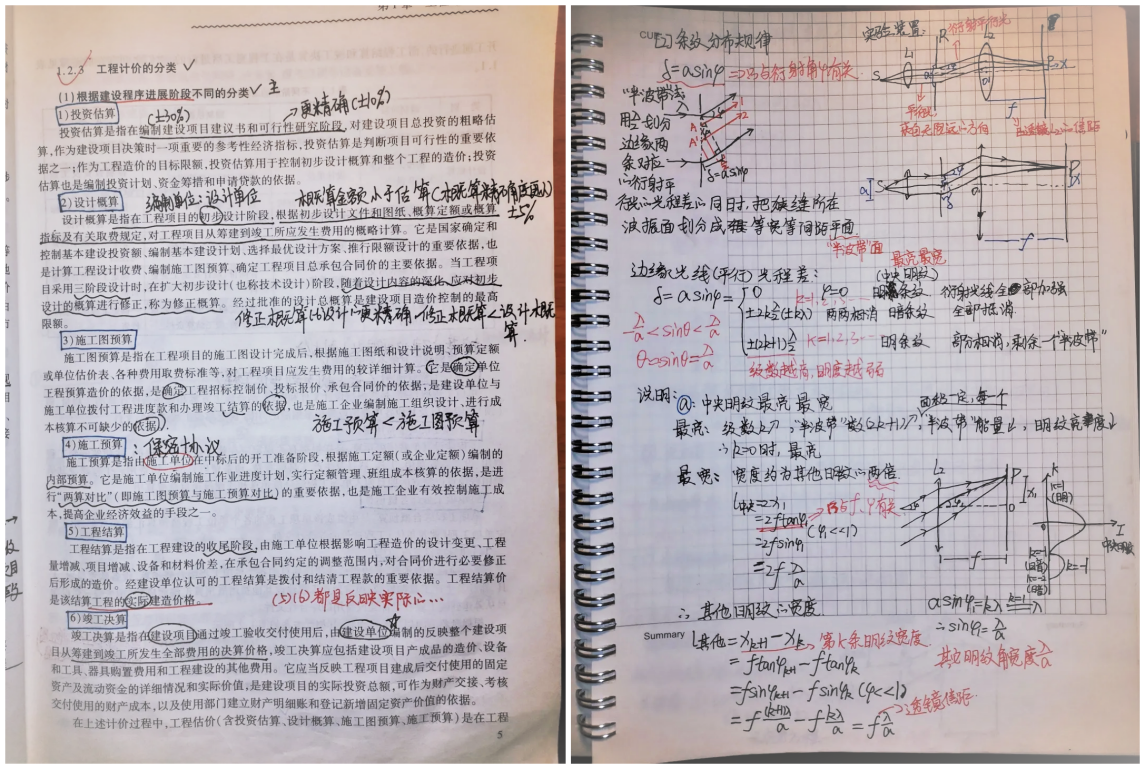 1.2.3 工程计价的分类 ✓
(1)根据建设程序进展阶段不同的分类 ✓ 主
1)投资估算 (±30%) →更精确(±10%)
投资估算是指在编制建设项目建议书和可行性研究阶段,对建设项目总投资的粗略估
算,作为建设项目决策时一项重要的参考性经济指标,投资估算是判断项目可行性的重要依
据之一;作为工程造价的目标限额,投资估算用于控制初步设计概算和整个工程的造价;投资
估算也是编制投资计划、资金筹措和申请贷款的依据。
2)设计概算 编制单位:设计单位 概算金额小于估算(概算精确度更高)
±5%
设计概算是指在工程项目的初步设计阶段,根据初步设计文件和图纸、概算定额或概算
指标及有关取费规定,对工程项目从筹建到竣工所应发生费用的概略计算。它是国家确定和
控制基本建设投资额、编制基本建设计划、选择最优设计方案、推行限额设计的重要依据,也
是计算工程设计收费、编制施工图预算、确定工程项目总承包合同价的主要依据。当工程项
目采用三阶段设计时,在扩大初步设计(也称技术设计)阶段,随着设计内容的深化,应对初步
设计的概算进行修正,称为修正概算。经过批准的设计总概算是建设项目造价控制的最高
限额。 修正概算比设计的更精确 修正概算<设计概算
3)施工图预算
施工图预算是指在工程项目的施工图设计完成后,根据施工图纸和设计说明、预算定额
或单位估价表、各种费用取费标准等,对工程项目应发生费用的较详细计算。它是确定单位
工程预算造价的依据,是确定工程招标控制价、投标报价、承包合同价的依据;是建设单位与
施工单位拨付工程进度款和办理竣工结算的依据,也是施工企业编制施工组织设计,进行成
本核算不可缺少的依据。 施工预算<施工图预算
4)施工预算 :保密协议
施工预算是指由施工单位在中标后的开工准备阶段,根据施工定额(或企业定额)编制的
内部预算。它是施工单位编制施工作业进度计划,实行定额管理、班组成本核算的依据,是进
行“两算对比”(即施工图预算与施工预算对比)的重要依据,也是施工企业有效控制施工成
本,提高企业经济效益的手段之一。
5)工程结算
工程结算是指在工程建设的收尾阶段,由施工单位根据影响工程造价的设计变更、工程
量增减、项目增减、设备和材料价差,在承包合同约定的调整范围内,对合同价进行必要修正
后形成的造价。经建设单位认可的工程结算是拨付和结清工程款的重要依据。工程结算价
是该结算工程的实际建造价格。 (5)(6)都是反映实际的…
6)竣工决算 ☆
竣工决算是指在建设项目通过竣工验收交付使用后,由建设单位编制的反映整个建设项
目从筹建到竣工所发生全部费用的决算价格,竣工决算应包括建设项目产成品的造价、设备
和工具、器具购置费用和工程建设的其他费用。它应当反映工程项目建成后交付使用的固定
资产及流动资金的详细情况和实际价值,是建设项目的实际投资总额,可作为财产交接、考核
交付使用的财产成本,以及使用部门建立财产明细账和登记新增固定资产价值的依据。
在上述计价过程中,工程估价(含投资估算、设计概算、施工图预算、施工预算)是在工程
5
(2)条纹分布规律
δ=asinφ ⇒只与衍射角φ有关.
“半波带”法
用λ/2划分
边缘两
条对应
的衍射平
δ=asinφ
行光的光程差的同时,把狭缝所在
波振面划分成等宽等间距平面
“半波带”面
实验装置: 衍射平行光
S L₁ R L₂ P x
a φ O f
平行光:
“透镜L₂的焦距
a S δ P x
f
边缘光线(平行)光程差: (中央明纹) 最亮最宽
δ=asinφ= 0 φ=0 明条纹 衍射光线全部加强
±2kλ/2(±kλ) k=1,2,3… 两两相消 暗条纹 全部抵消
±(2k+1)λ/2 k=1,2,3… 明条纹 部分相消,剩余一个“半波带”
-λ/a<sinθ<λ/a
θ≈sinθ=λ/a
级数越高,明度越弱
说明: ⓐ:中央明纹最亮最宽
面积一定,每个
最亮:级数k↗,∴“半波带”数(2k+1)↗,“半波带”能量↓,明纹亮度↓
∴k=0时,最亮
最宽:宽度约为其他明纹的两倍
L中央=2x₁
=2ftanφ₁ →只与f、φ有关
=2fsinφ₁ (φ₁<<1)
=2f λ/a
L₂ P x₁ 2φ₁ O f
k k=1(明) I 中央明纹
k=-1(暗) k=-2(暗) k=-1
asinφ₁=kλ k=1 λ
∴sinφ₁=λ/a
∴其他明纹的宽度
Summary
L其他=xₖ₊₁-xₖ 第k条明纹宽度
=ftanφₖ₊₁-ftanφₖ
=fsinφₖ₊₁-fsinφₖ (φ<<1)
=f(k+1)λ/a-f kλ/a=f λ/a →透镜焦距
其它明纹角宽度λ/a